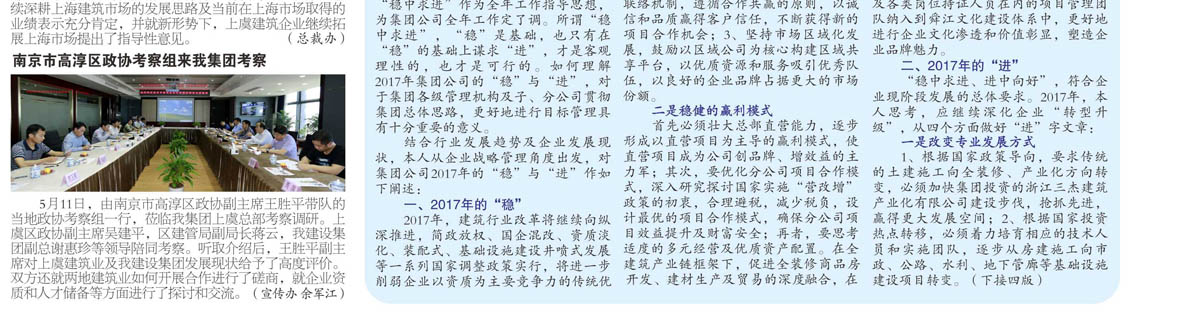 续深耕上海建筑市场的发展思路及当前在上海市场取得的
业绩表示充分肯定，并就新形势下，上虞建筑企业继续拓
展上海市场提出了指导性意见。 （总裁办）
南京市高淳区政协考察组来我集团考察
5月11日，由南京市高淳区政协副主席王胜平带队的
当地政协考察组一行，莅临我集团上虞总部考察调研。上
虞区政协副主席吴建平，区建管局副局长蒋云，我建设集
团副总谢惠珍等领导陪同考察。听取介绍后，王胜平副主
席对上虞建筑业及我建设集团发展现状给予了高度评价。
双方还就两地建筑业如何开展合作进行了磋商，就企业资
质和人才储备等方面进行了探讨和交流。（宣传办 余军江）
“稳中求进”作为全年工作指导思想，
为集团公司全年工作定了调。所谓“稳
中求进”，“稳”是基础，也只有在
“稳”的基础上谋求“进”，才是客观
理性的，也才是可行的。如何理解
2017年集团公司的“稳”与“进”，对
于集团各级管理机构及子、分公司贯彻
集团总体思路，更好地进行目标管理具
有十分重要的意义。
结合行业发展趋势及企业发展现
状，本人从企业战略管理角度出发，对
集团公司2017年的“稳”与“进”作如
下阐述：
一、2017年的“稳”
2017年，建筑行业改革将继续向纵
深推进，简政放权、国企混改、资质淡
化、装配式、基础设施建设井喷式发展
等一系列国家调整政策实行，将进一步
削弱企业以资质为主要竞争力的传统优
联络机制，遵循合作共赢的原则，以诚
信和品质赢得客户信任，不断获得新的
项目合作机会；3、坚持市场区域化发
展，鼓励以区域公司为核心构建区域共
享平台，以优质资源和服务吸引优秀队
伍，以良好的企业品牌占据更大的市场
份额。
二是稳健的赢利模式
首先必须壮大总部直营能力，逐步
形成以直营项目为主导的赢利模式，使
直营项目成为公司创品牌、增效益的主
力军；其次，要优化分公司项目合作模
式，深入研究探讨国家实施“营改增”
政策的初衷，合理避税，减少税负，设
计最优的项目合作模式，确保分公司项
目效益提升及财富安全；再者，要思考
适度的多元经营及优质资产配置。在全
建筑产业链框架下，促进全装修商品房
开发、建材生产及贸易的深度融合，在
及各类岗位持证人员在内的项目管理团
队纳入到舜江文化建设体系中，更好地
进行企业文化渗透和价值彰显，塑造企
业品牌魅力。
二、2017年的“进”
“稳中求进、进中向好”，符合企
业现阶段发展的总体要求。2017年，本
人思考，应继续深化企业“转型升
级”，从四个方面做好“进”字文章：
一是改变专业发展方式
1、根据国家政策导向，要求传统
的土建施工向全装修、产业化方向转
变，必须加快集团投资的浙江三杰建筑
产业化有限公司建设步伐，抢抓先进，
赢得更大发展空间；2、根据国家投资
热点转移，必须着力培育相应的技术人
员和实施团队，逐步从房建施工向市
政、公路、水利、地下管廊等基础设施
建设项目转变。（下接四版）